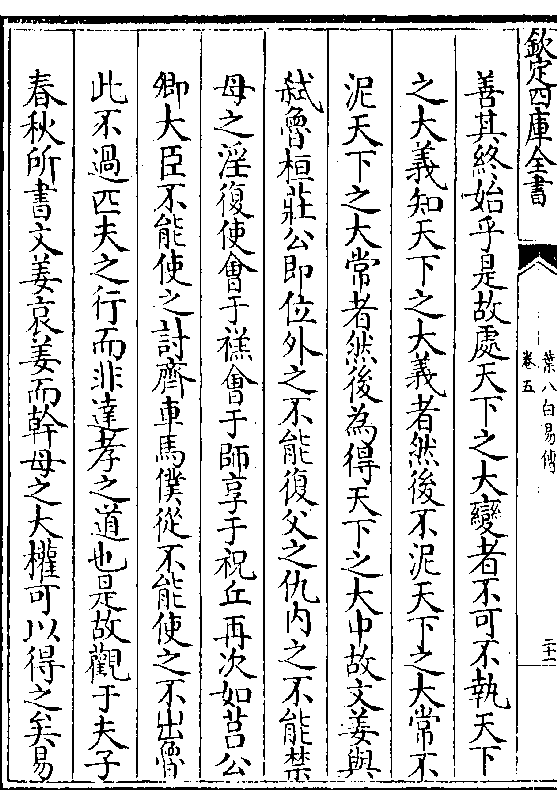 欽定四庫全書
葉八白易傳
卷五
二十二
善其終始乎是故處天下之大變者不可不執天下
之大義知天下之大義者然後不泥天下之大常不
泥天下之大常者然後為得天下之大中故文姜與
弑魯桓莊公即位外之不能復父之仇内之不能禁
母之淫復使會于禚會于師享于祝丘再次如莒公
卿大臣不能使之討齊車馬僕從不能使之不出魯
此不過匹夫之行而非達孝之道也是故觀于夫子
春秋所書文姜哀姜而幹母之大權可以得之矣易